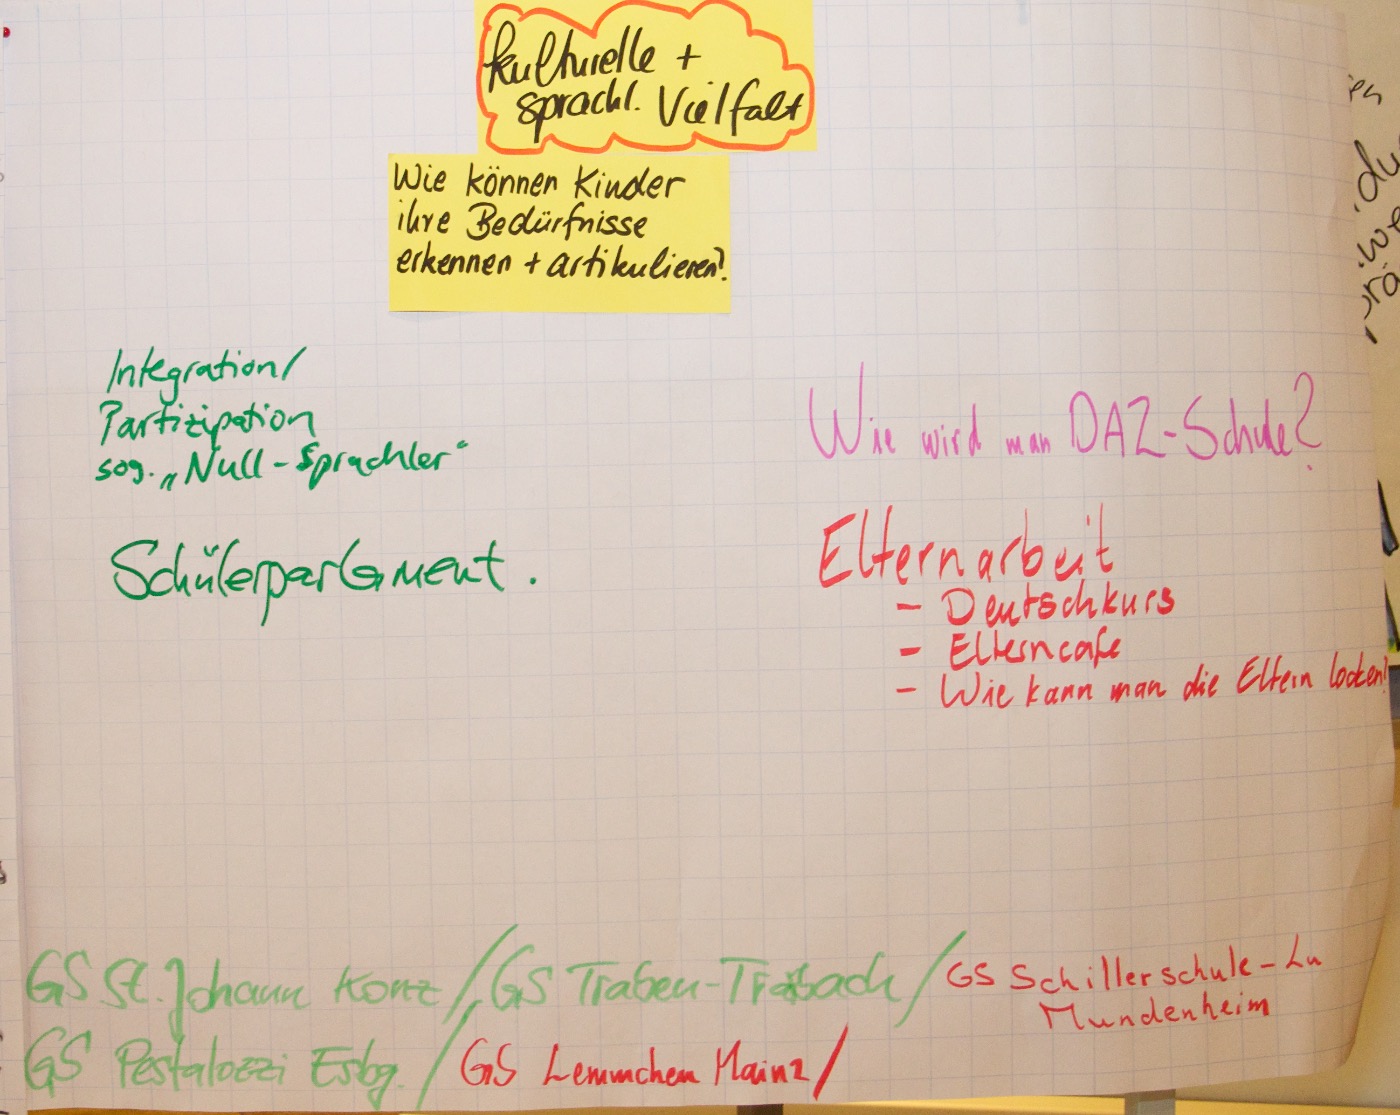 kulturelle +
sprachl. Vielfalt
Wie können Kinder
ihre Bedürfnisse
erkennen + artikulieren?
Integration/
Partizipation
sog. „Null-Sprachler“
Schülerparlament.
Wie wird man DAZ-Schule?
Elternarbeit
- Deutschkurs
- Elterncafe
- Wie kann man die Eltern locken?
GS St. Johann Konz / GS Traben-Trabach / GS Schillerschule-Lu
Mundenheim
GS Pestalozzi Esbg. / GS Lemmchen Mainz /